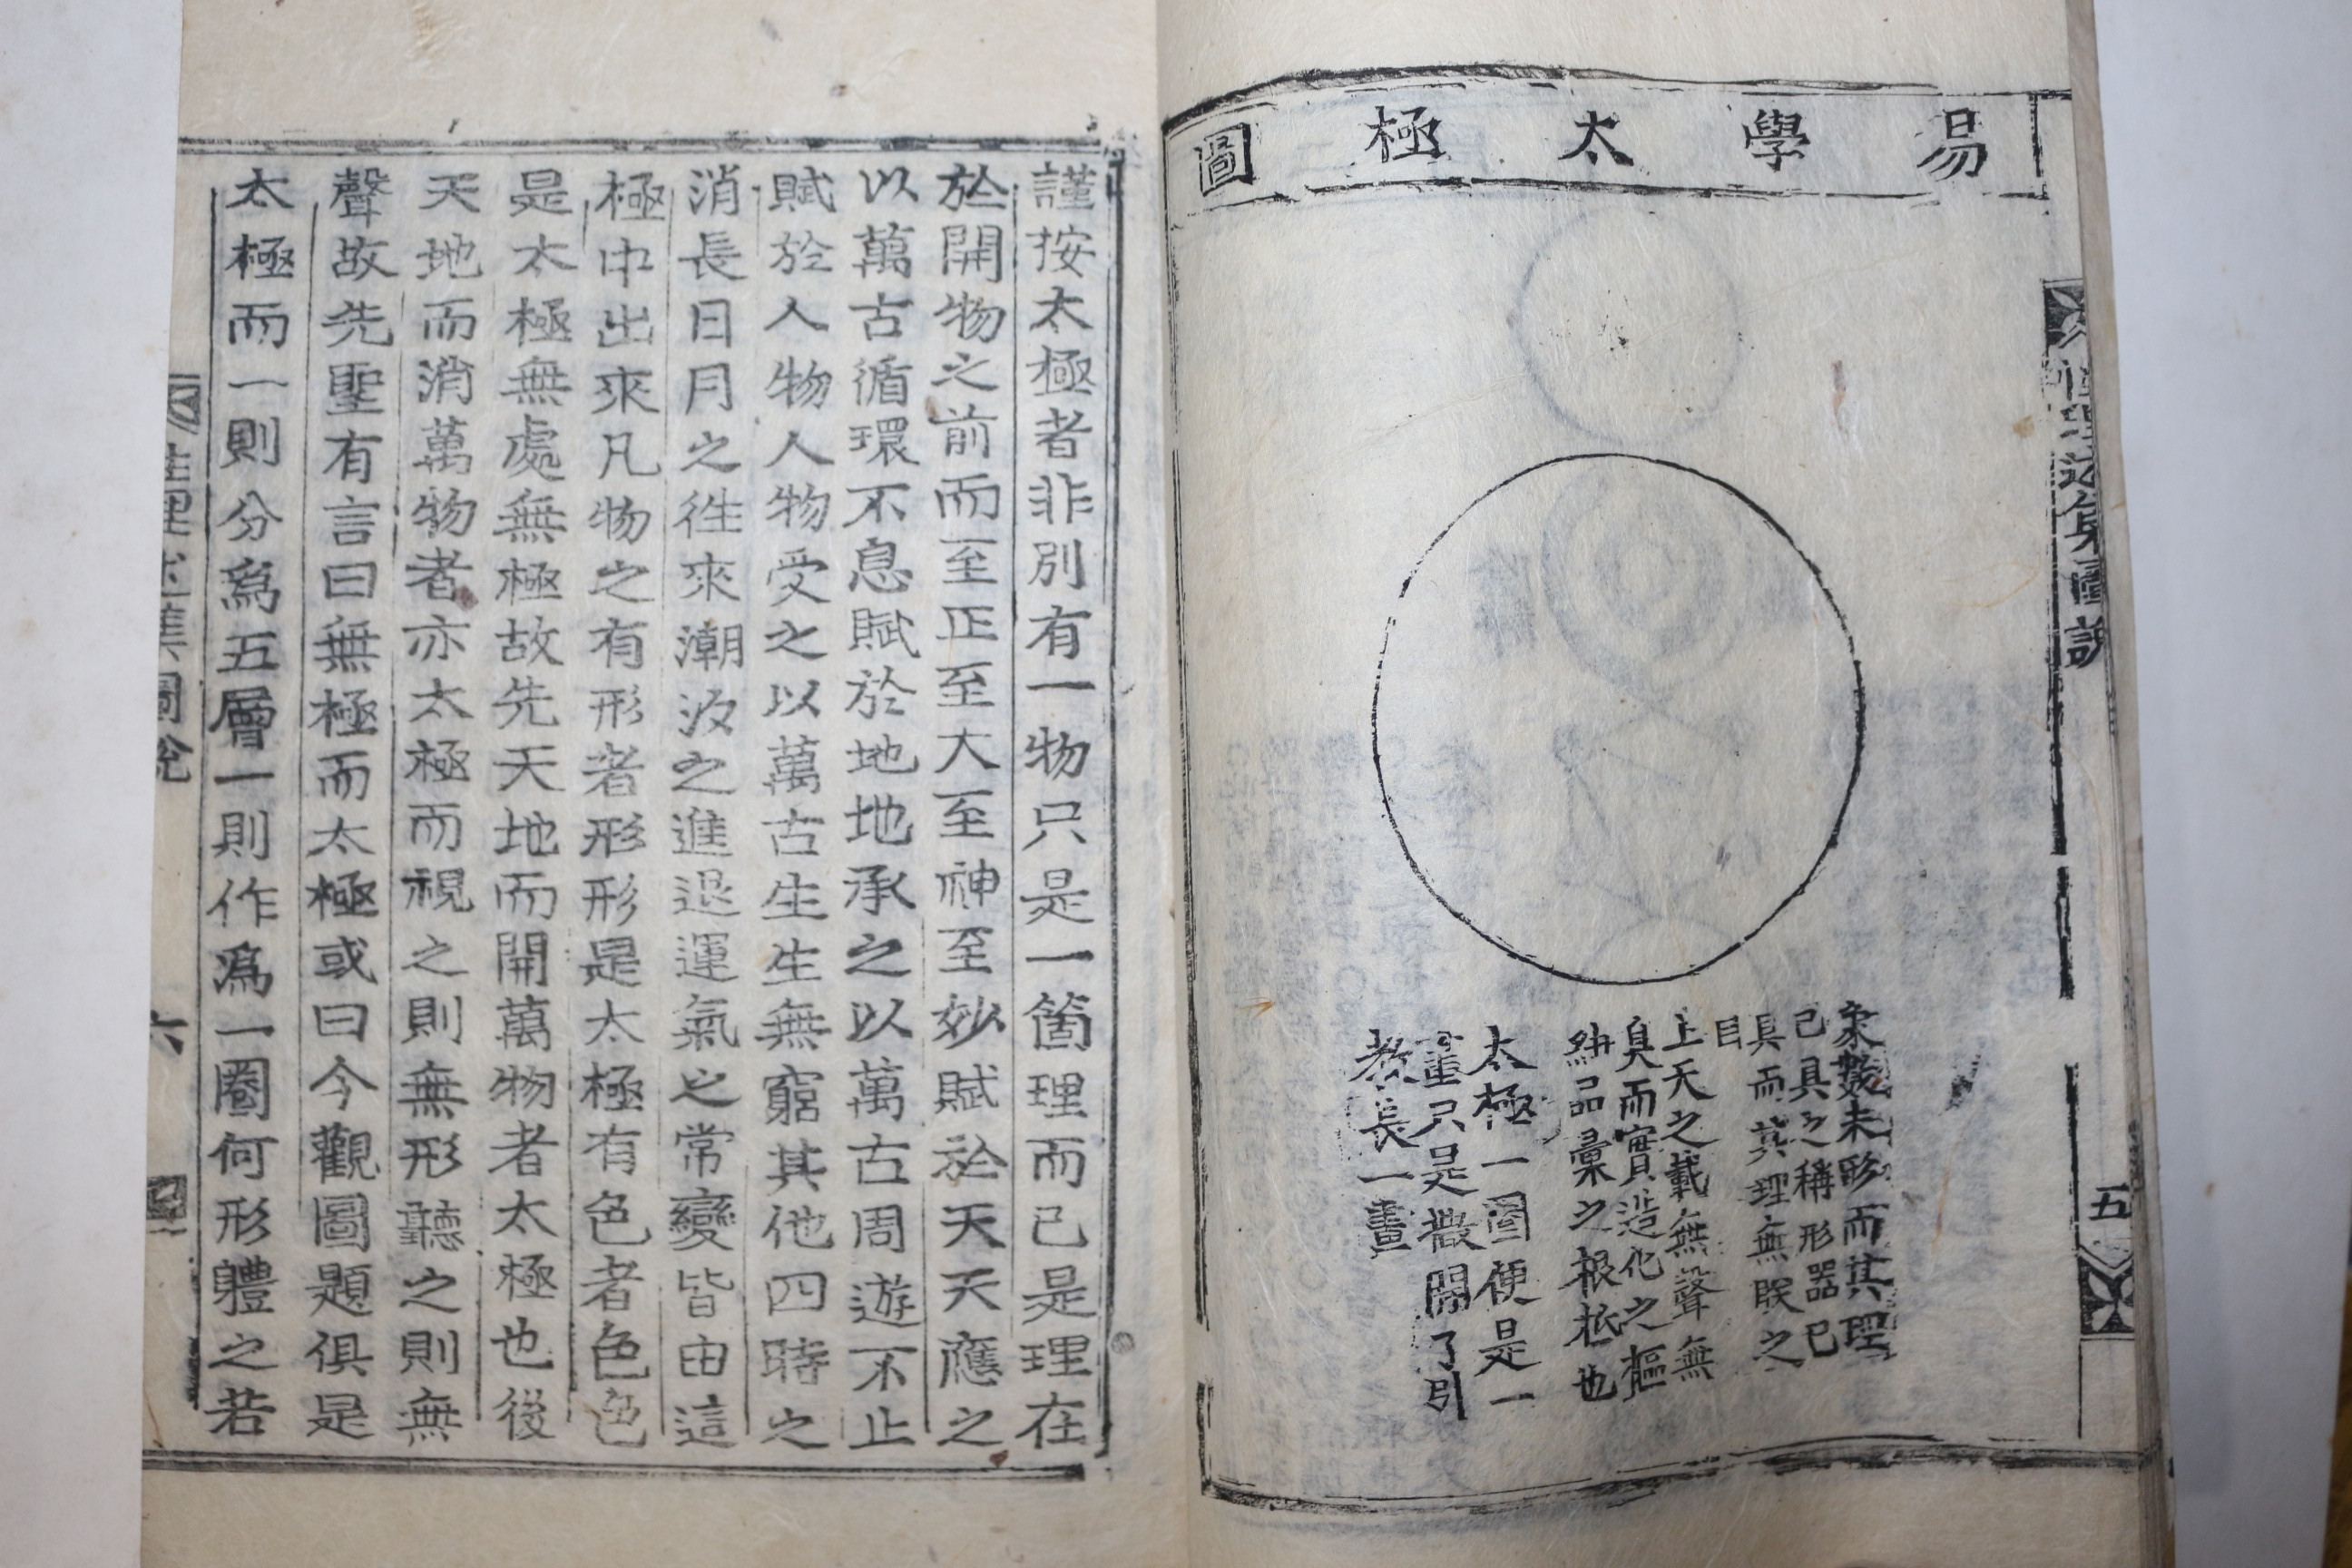 易學太極圖
象數未形而其理
已具之稱形器已
具而其理無眹之
目
上天之載無聲無
臭而實造化之樞
紐品彙之根柢也
太極一圈便是一
畫只是撒開了引
教長一畫
性理述集圖說
五
謹按太極者非別有一物只是一箇理而已是理在
於開物之前而至正至大至神至妙賦於天天應之
以萬古循環不息賦於地地承之以萬古周遊不止
賦於人物人物受之以萬古生生無窮其他四時之
消長日月之徃來潮汐之進退運氣之常變皆由這
極中出來凡物之有形者形形是太極有色者色色
是太極無處無極故先天地而開萬物者太極也後
天地而消萬物者亦太極而視之則無形聽之則無
聲故先聖有言曰無極而太極或曰今觀圖題俱是
太極而一則分爲五層一則作爲一圈何形體之若
性理述集圖說
六